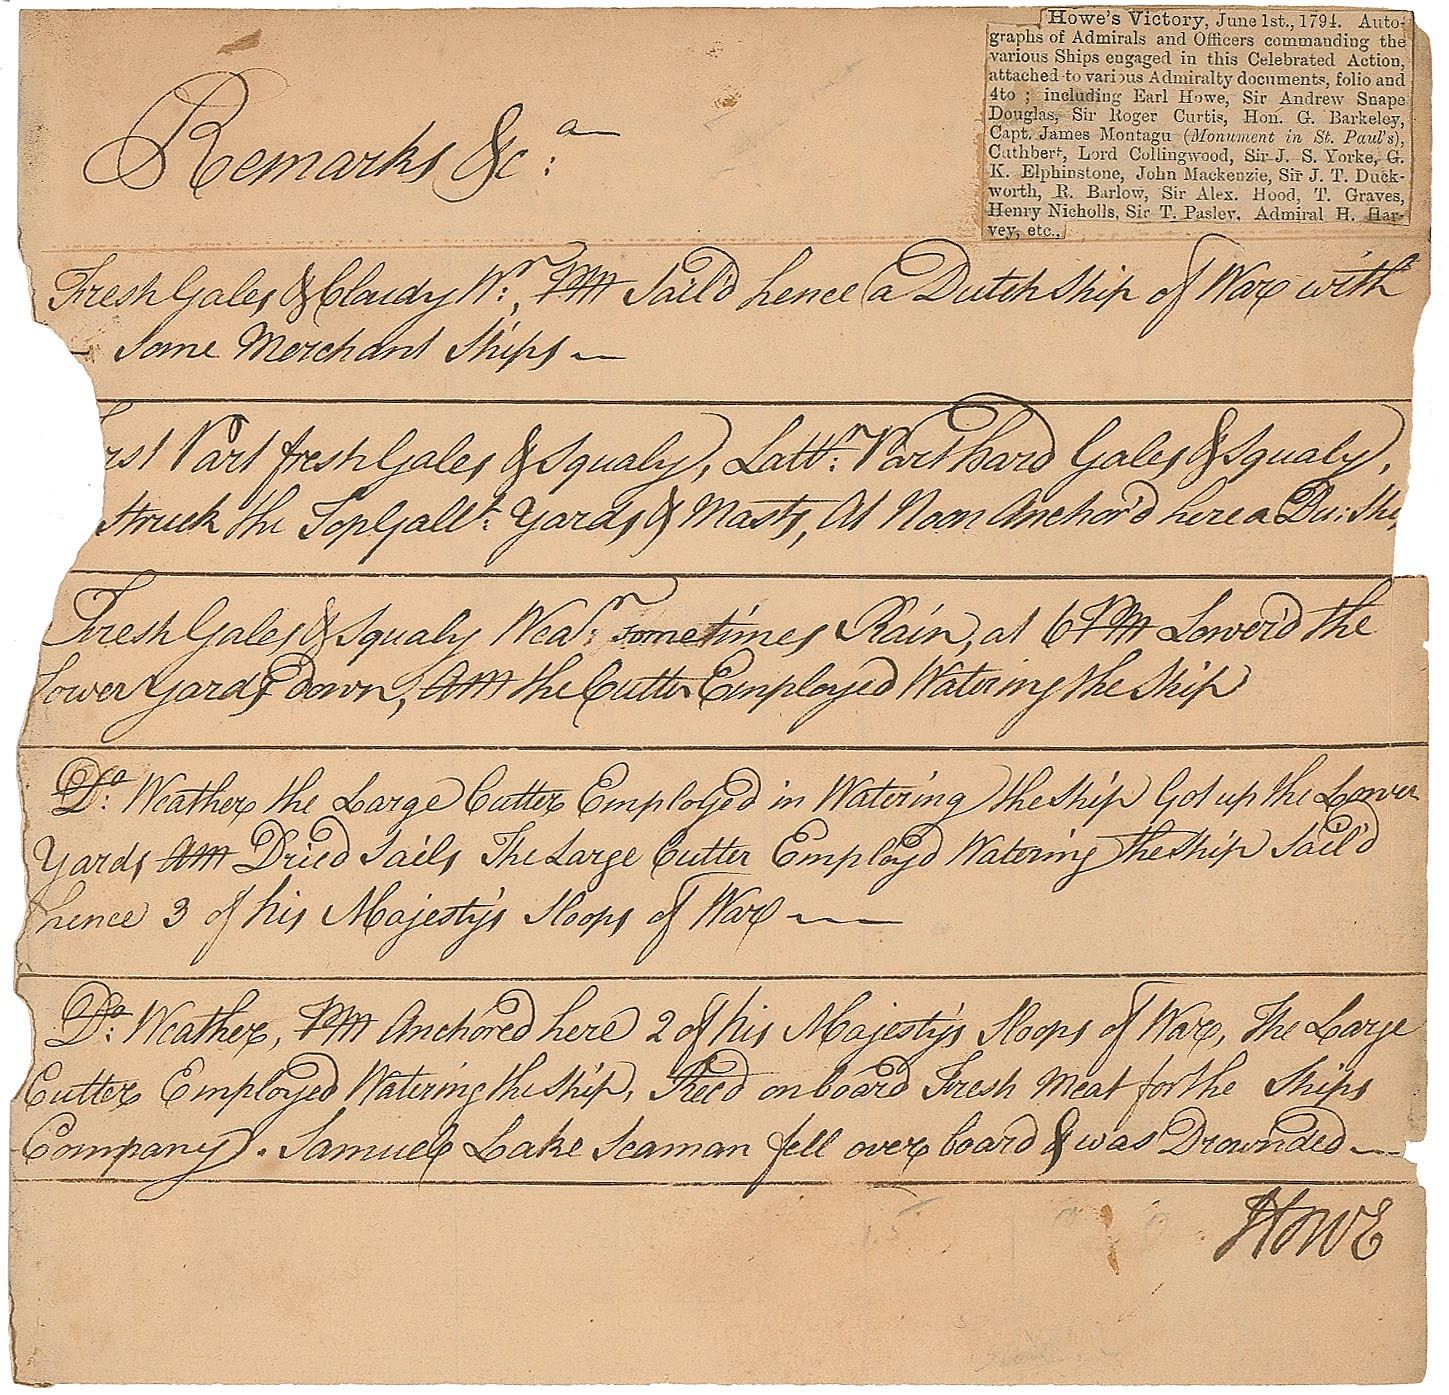 Howe's Victory, June 1st., 1794. Auto-
graphs of Admirals and Officers commanding the
various Ships engaged in this Celebrated Action,
attached to various Admiralty documents, folio and
4to ; including Earl Howe, Sir Andrew Snape
Douglas, Sir Roger Curtis, Hon. G. Barkeley,
Capt. James Montagu (Monument in St. Paul's),
Cuthbert, Lord Collingwood, Sir J. S. Yorke, G.
K. Elphinstone, John Mackenzie, Sir J. T. Duck-
worth, R. Barlow, Sir Alex. Hood, T. Graves,
Henry Nicholls, Sir T. Pasley, Admiral H. Har-
vey, etc.,
Remarks &c:a
Fresh Gales & Cloudy Wr, PM Sail'd hence a Dutch Ship of War with
- Some Merchant Ships
rst Part fresh Gales & Squaly, Lattr: Part hard Gales & Squaly,
Struck the TopGallt: Yards & Masts, At Noon Anchor'd here a Du: Ship
Fresh Gales & Squaly Wear: sometimes Rain, at 6 PM Lower'd the
Lower Yards down, AM the Cutter Employed Watering the Ship
Do: Weather the Large Cutter Employed in Watering the Ship Got up the Lower
Yards AM Dried Sails The Large Cutter Employd Watering the Ship Sail'd
hence 3 of his Majesty's Sloops of War
Do: Weather, PM Anchored here 2 of his Majesty's Sloops of War, The Large
Cutter Employed Watering the Ship, Rec'd on board Fresh Meat for the Ships
Company. Samuel Lake Seaman fell over board & was Drownded
Howe